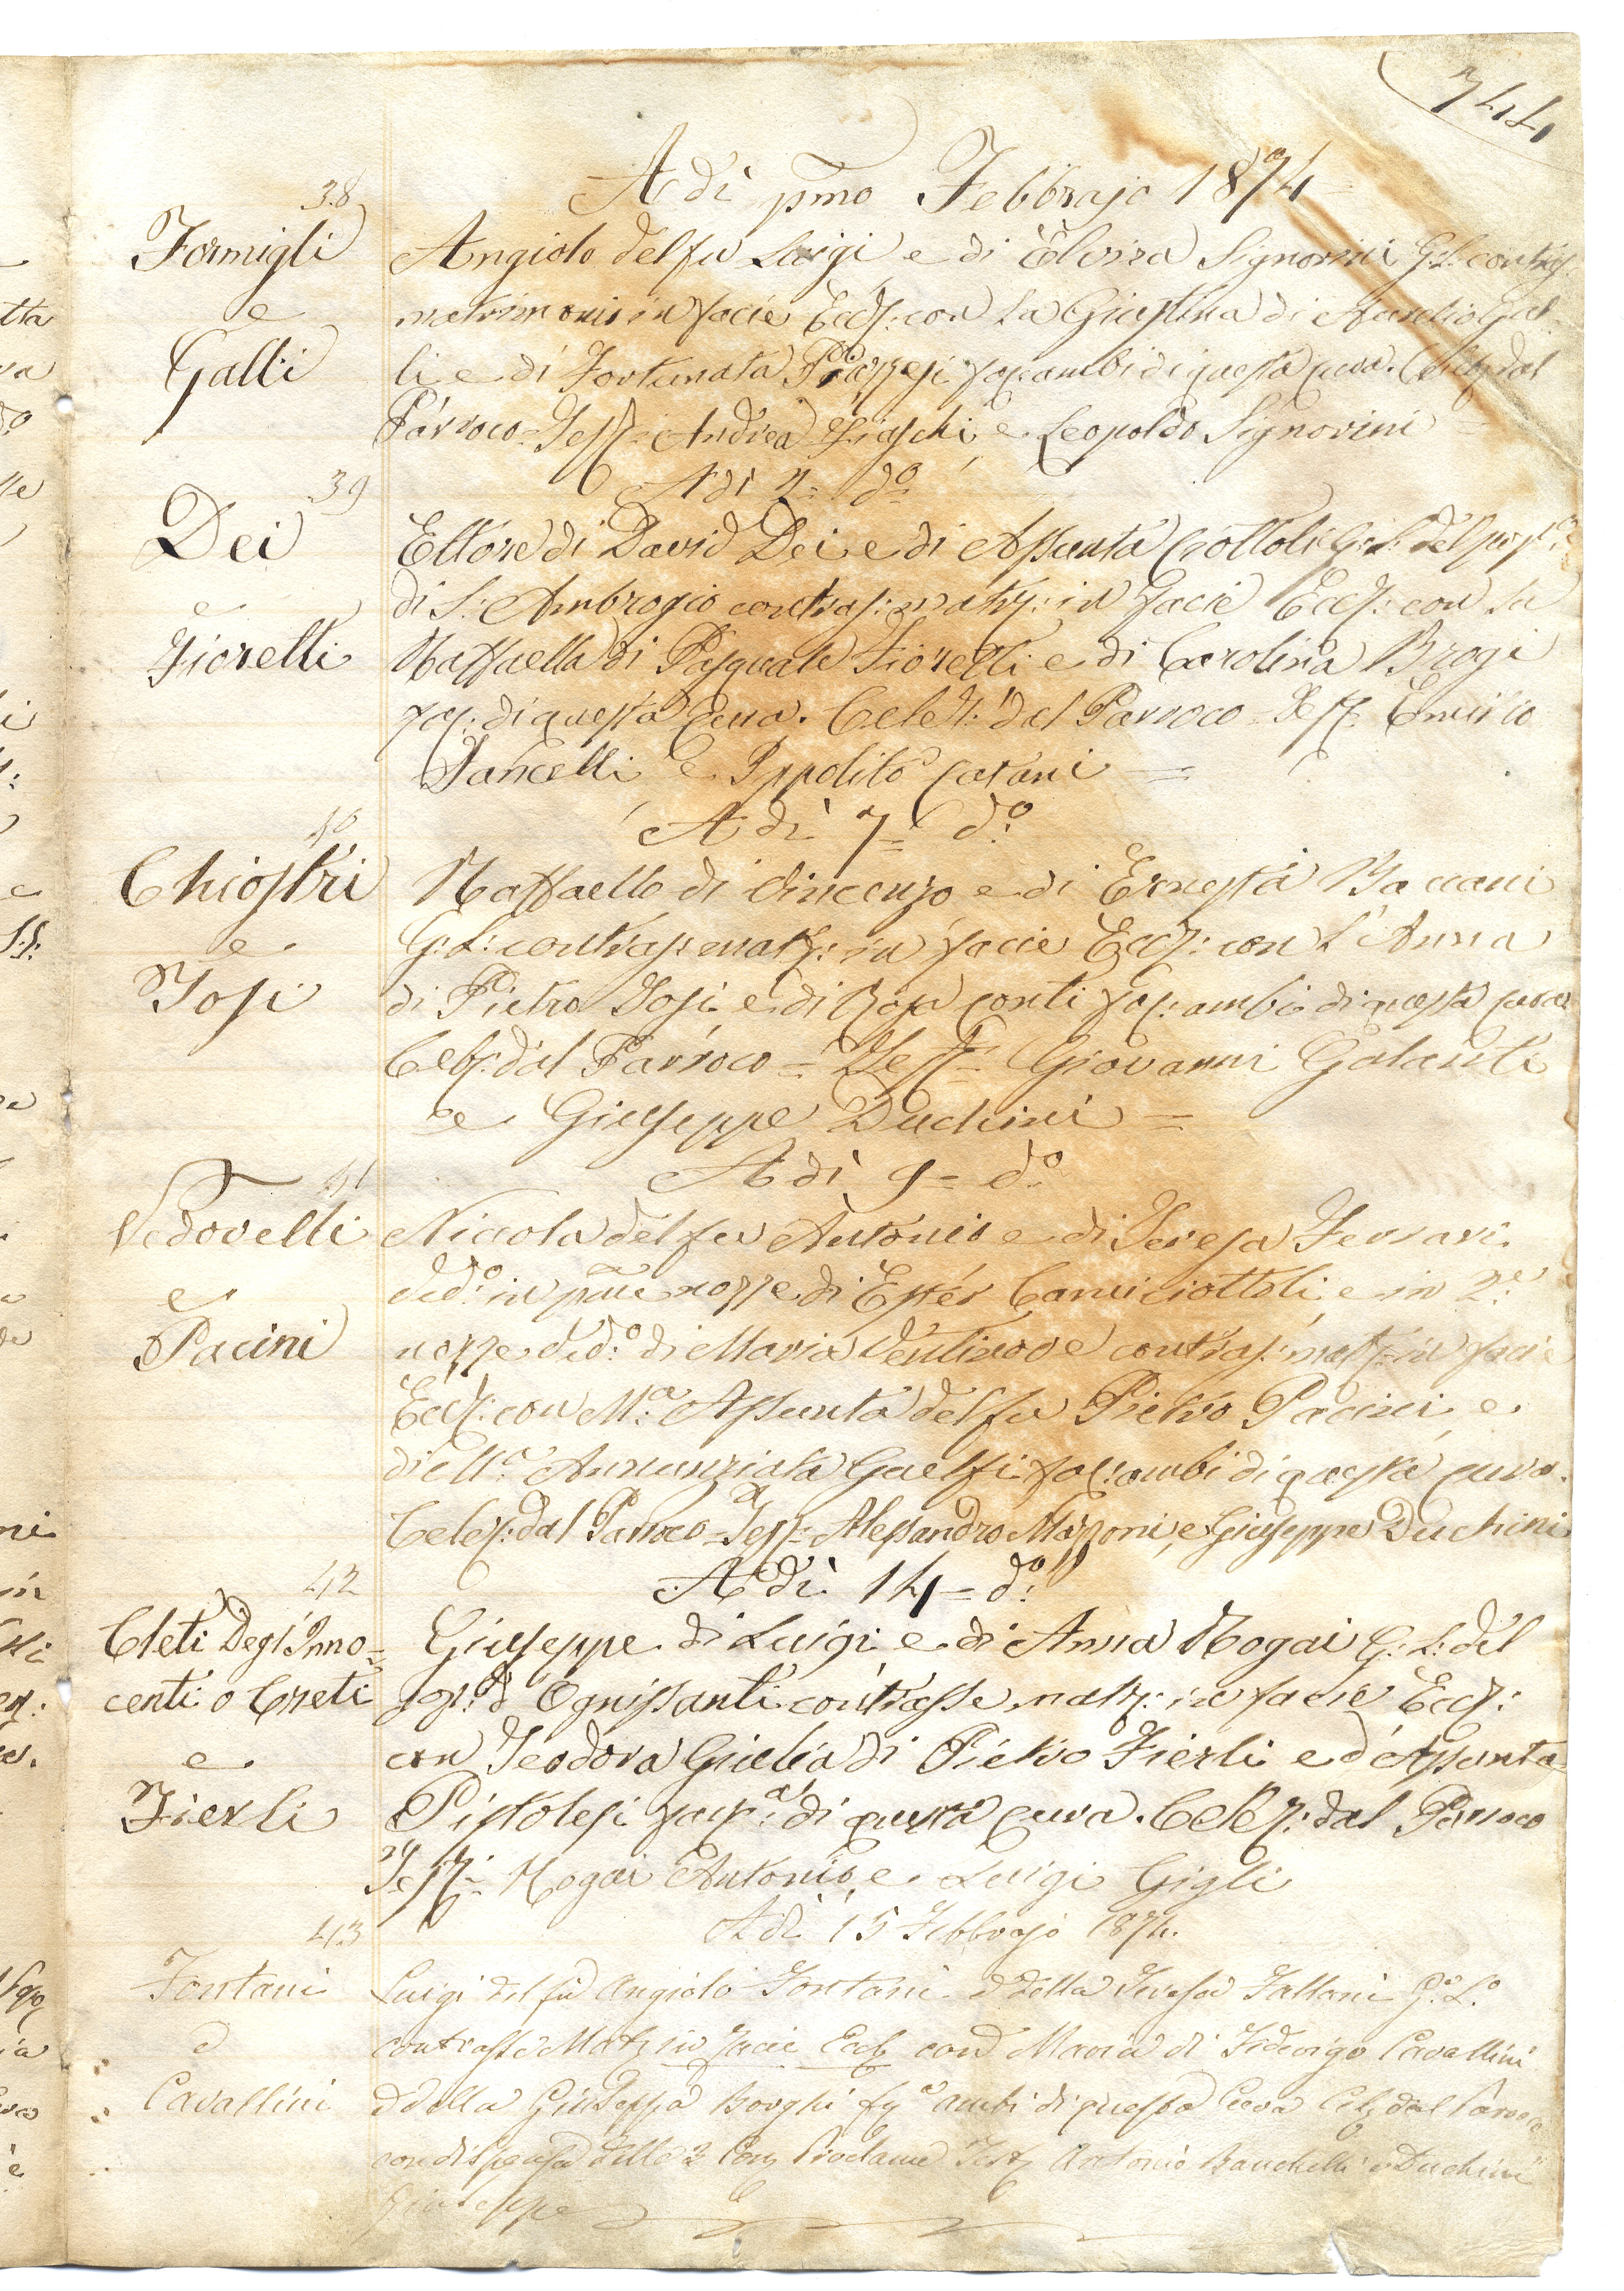 744
Adì pmo Febbrajo 1874
38
Formigli
e
Galli
Angiolo del fu Luigi e di Elvira Signorini G: L: contras:
matrimonio in facie Eccl: con la Giustina di Aurelio Gal-
li e di Fortunata fan: ambi di questa cura. Celeb: dal
Parroco = Test: Andrea e Leopoldo Signorini
Adì d.o
39
Dei
e
Fiorelli
Ettore di David Dei e di Assunta Ciottoli G: L: del pop.o
di S: Ambrogio contras: matr: in facie Eccl: con la
Raffaella di Pasquale Fiorelli e di Carolina Brogi
fan: di questa Cura. Celeb: dal Parroco = Test: Emilio
Pancelli e Ippolito Catani =
Adì 7= d.o
40
Chiostri
e
Tosi
Raffaello di Vincenzo e di Ernesta Baccani
G: L: contras: matr: in facie Eccl: con L'Anna
di Pietro Tosi e di Rosa Conti fan: ambi di questa cura
Celeb: dal Parroco = Test= Giovanni Galanti
e Giuseppe Duchini =
Adì 9= d.o
41
Vedovelli
e
Pacini
Niccola del fu Antonio e di Teresa Ferrari
Ved.o in pme nozze di Ester Camiciottoli e in 2.e
nozze Ved.o di Maria contras: matr: in facie
Eccl: con M.a Assunta del fu Pietro Pacini e
di M.a Annunziata Guelfi fan: ambi di questa cura.
Celeb: dal Parroco = Test= Alessandro Mazzoni, e Giuseppe Duchini
Adì 14= d.o
42
Cleti Degl'Inno-
centi o Creti
e
Fierli
Giuseppe di Luigi e di Anna Nogai G: L: del
pop: d'Ognissanti contrasse matr: in facie Eccl:
con Teodora Giulia di Pietro Fierli e d'Assunta
Pistolesi fan.a di questa Cura. Celeb: dal Parroco
Test= Nogai Antonio, e Luigi Gigli
Adì 15 Febbrajo 1874.
43
Fontani
e
Cavallini
Luigi del fu Angiolo Fontani e della Teresa Fallani G.o L.o
contrasse Matr in facie Eccl con Maria di Federigo Cavallini
e della Giuseppa Borghi ambi di questa Cura Celeb dal Parroco
con dispensa delle 2 Proclame Test Antonio Banchelli e Duchini
Giuseppe